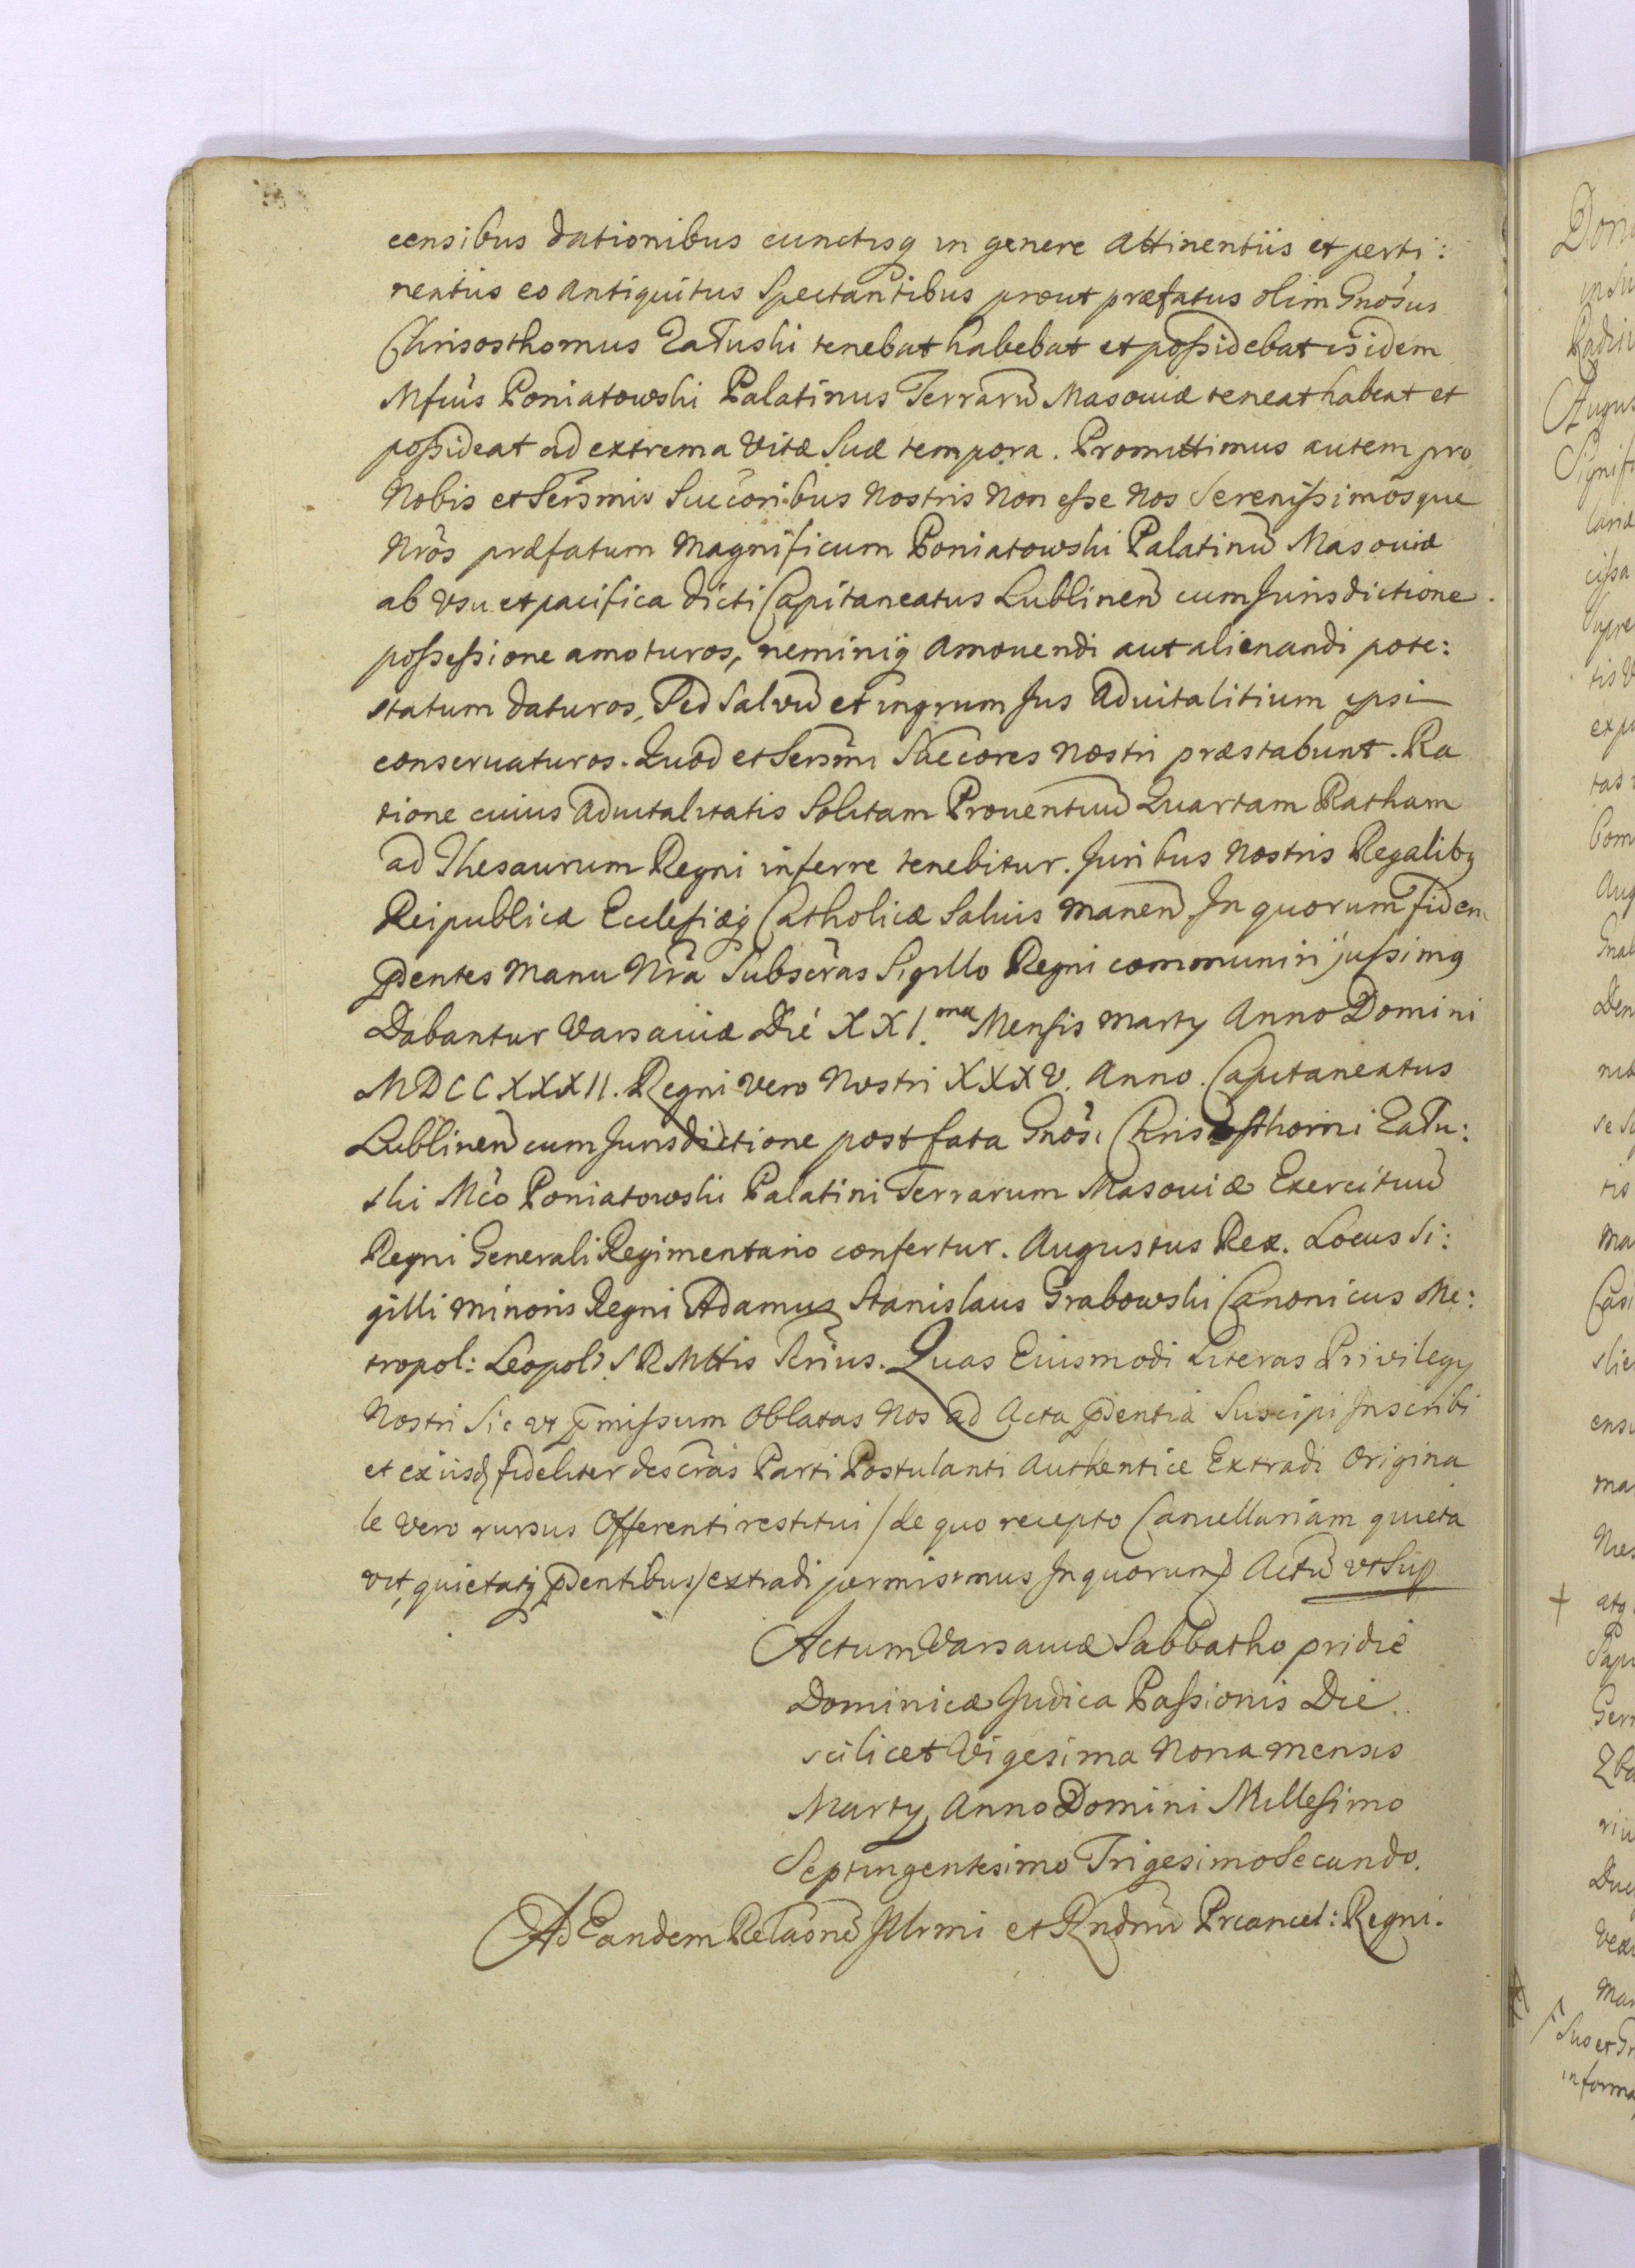 censibus dationibus cunctisq in genere attinentiis et perti:
nentiis eo antiquitus Spectantibus prout præfatus olim Gnosus
Chrisosthomus Załuski tenebat habebat et possidebat is idem
Mfcus Poniatowski Palatinus Terrarũ Masoviæ teneat habeat et
possideat ad extrema Vitæ Suæ tempora. Promittimus autem pro
Nobis et Sersmis Succoribus Nostris Non esse Nos Serenissimosque
Nros præfatum Magnificum Poniatowski Palatinũ Masoviæ
ab Usu et pacifica dicti Capitaneatus Lublinen cum Jurisdictione
possessione amoturos, neminiq amovendi aut alienandi pote:
statum daturos, Sed Salvũ et ingrum Jus Advitalitium ipsi
conservaturos. Quod et Sersmi Sŭccores Nostri præstabunt. Ra
tione cuius Advitalitatis Solitam Proventuũ Quartam Ratham
ad Thesaurum Regni inferre tenebitur. Juribus Nostris Regalibq
Reipublicæ Ecclesiæq Catholicæ Salvis manen. In quorum fidem
pdentes Manu Nra Subscras Sigillo Regni communiri jussimq
Dabantur Varsaviæ Die XXI.ma Mensis Marty Anno Domini
MDCCXXXII. Regni Vero Nostri XXXV. Anno. Capitaneatus
Lublinen cum Jurisdictione post fata Gnosi Chrisosthomi Zału:
ski Mco Poniatowski Palatini Terrarum Masoviæ Exercituũ
Regni Generali Regimentario confertur. Augustus Rex. Locus Si:
gilli Minoris Regni Adamus Stanislaus Grabowski Canonicus Me:
tropol: Leopol: S R Mttis Srius. Quas Eiusmodi Literas Privilegy
Nostri Sic ut pmissum Oblatas Nos ad Acta pdentia Suscipi Inscribi
et ex iisdq fideliter descras Parti Postulanti Authentice Extradi Origina
le Vero rursus Offerenti restitui /de quo recepto Cancellariam quieta
vit, quietatq pdentibus/ extradi permisimus In quorum Actũ ut Sup
Actum Varsaviæ Sabbatho pridie
Dominicæ Judica Passionis Die
scilicet Vigesima Nona mensis
Marty Anno Domini Millesimo
Septingentesimo Trigesimo Secundo.
Ad Eandem Relãonẽ Illrmi et Rndmi Prcancel: Regni.